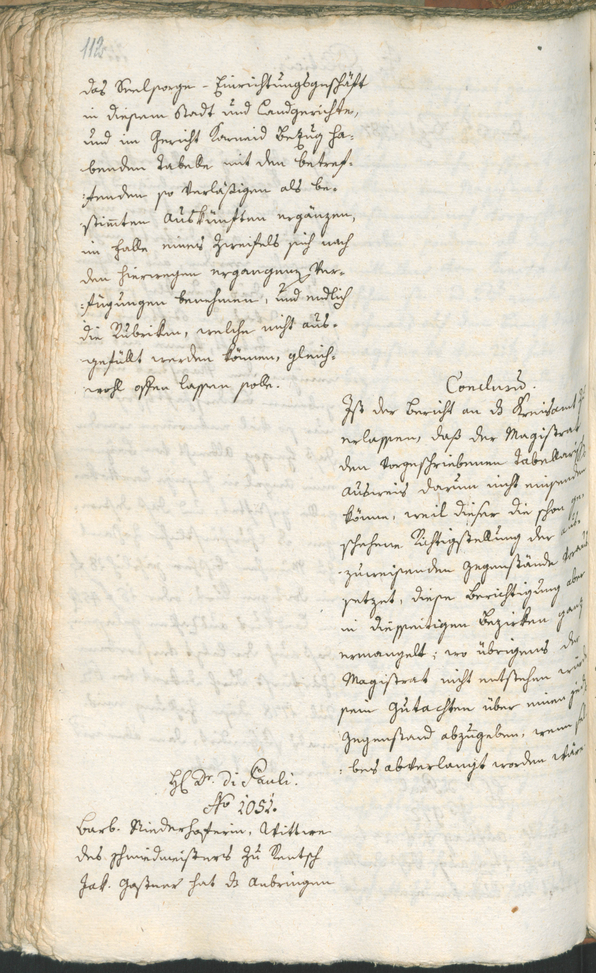 112
das Seelsorge-Einrichtungsgeschäft
in diesem Stadt und Landgerichte,
und im Gericht Karneid Bezug ha-
benden Tabelle mit den betref-
:fenden so verläßigen als be-
stim̄ten Auskünften ergänzen,
im Falle eines Zweifels sich nach
den hierwegen ergangenen Ver-
:fügungen benehmen, und endlich
die Rubriken, welche nicht aus-
gefüllt werden können, gleich-
wohl offen lassen solle.
Conclusum.
Ist der Bericht an das Kreisamt zu
erlassen, daß der Magistrat
den vorgeschriebenen Tabellari-
Ausweis darum nicht einsenden
könne, weil dieser die schon ge-
schehene Richtigstellung der aus-
zuweisenden Gegenstände voraus
setzet, diese Berichtigung aber
in diesseitigen Bezirken ganz
ermangelt; wo übrigens der
Magistrat nicht entstehen würde
sein Gutachten über einen jeden
Gegenstand abzugeben, wenn sel-
:bes abverlangt worden wäre.
H. Dr. di Pauli.
No 1051.
Barb. Niederhoferin, Wittwe
des Schmiedmeisters zu Rentsch
Jak. Gaßner hat das Anbringen